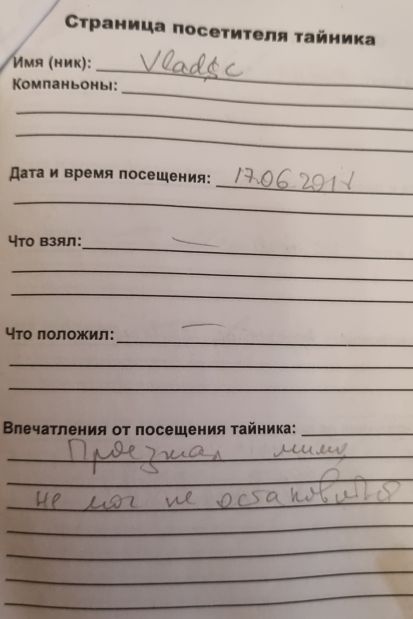 Страница посетителя тайника
Имя (ник):
Компаньоны:
Дата и время посещения: 17.06.2011
Что взял: —
Что положил: —
Впечатления от посещения тайника:
Проезжал мимо
не мог не остановиться